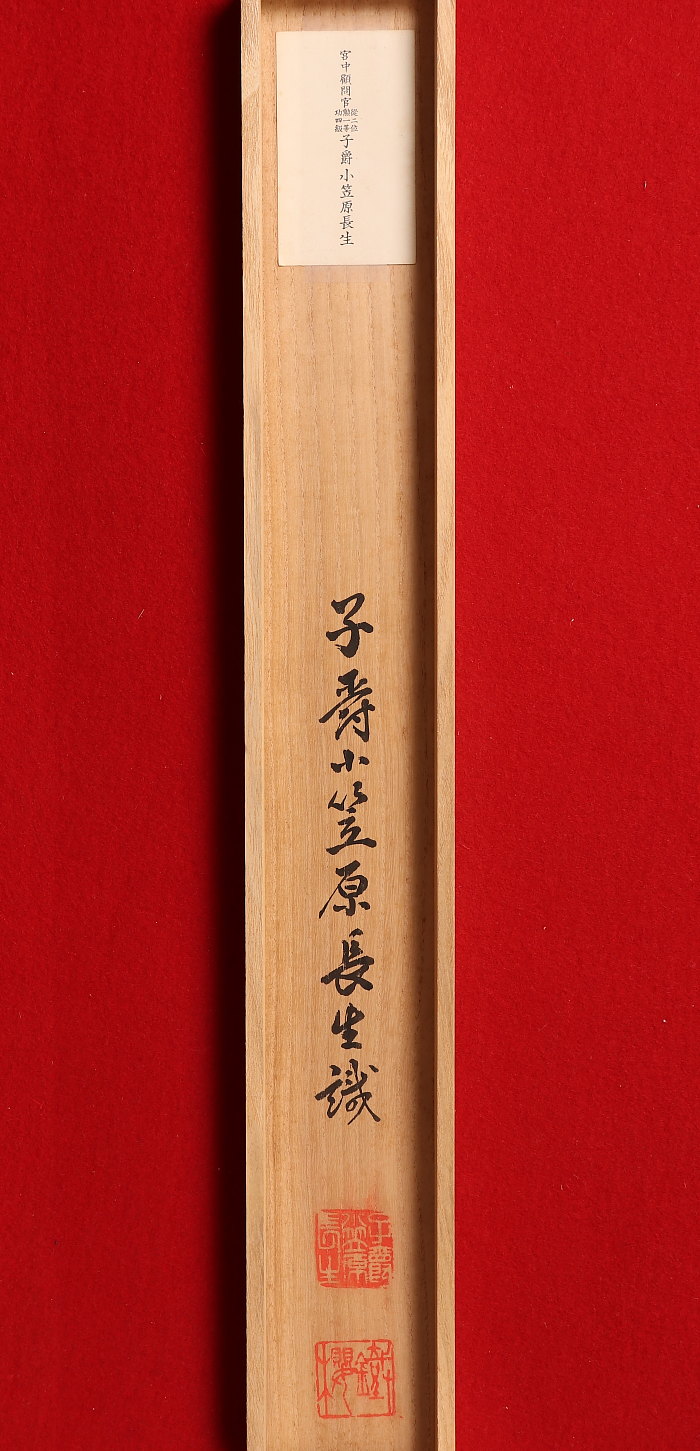 宮中顧問官
從二位
勲一等
功四級
子爵 小笠原長生
子爵小笠原長生識
子爵
小笠原
長生